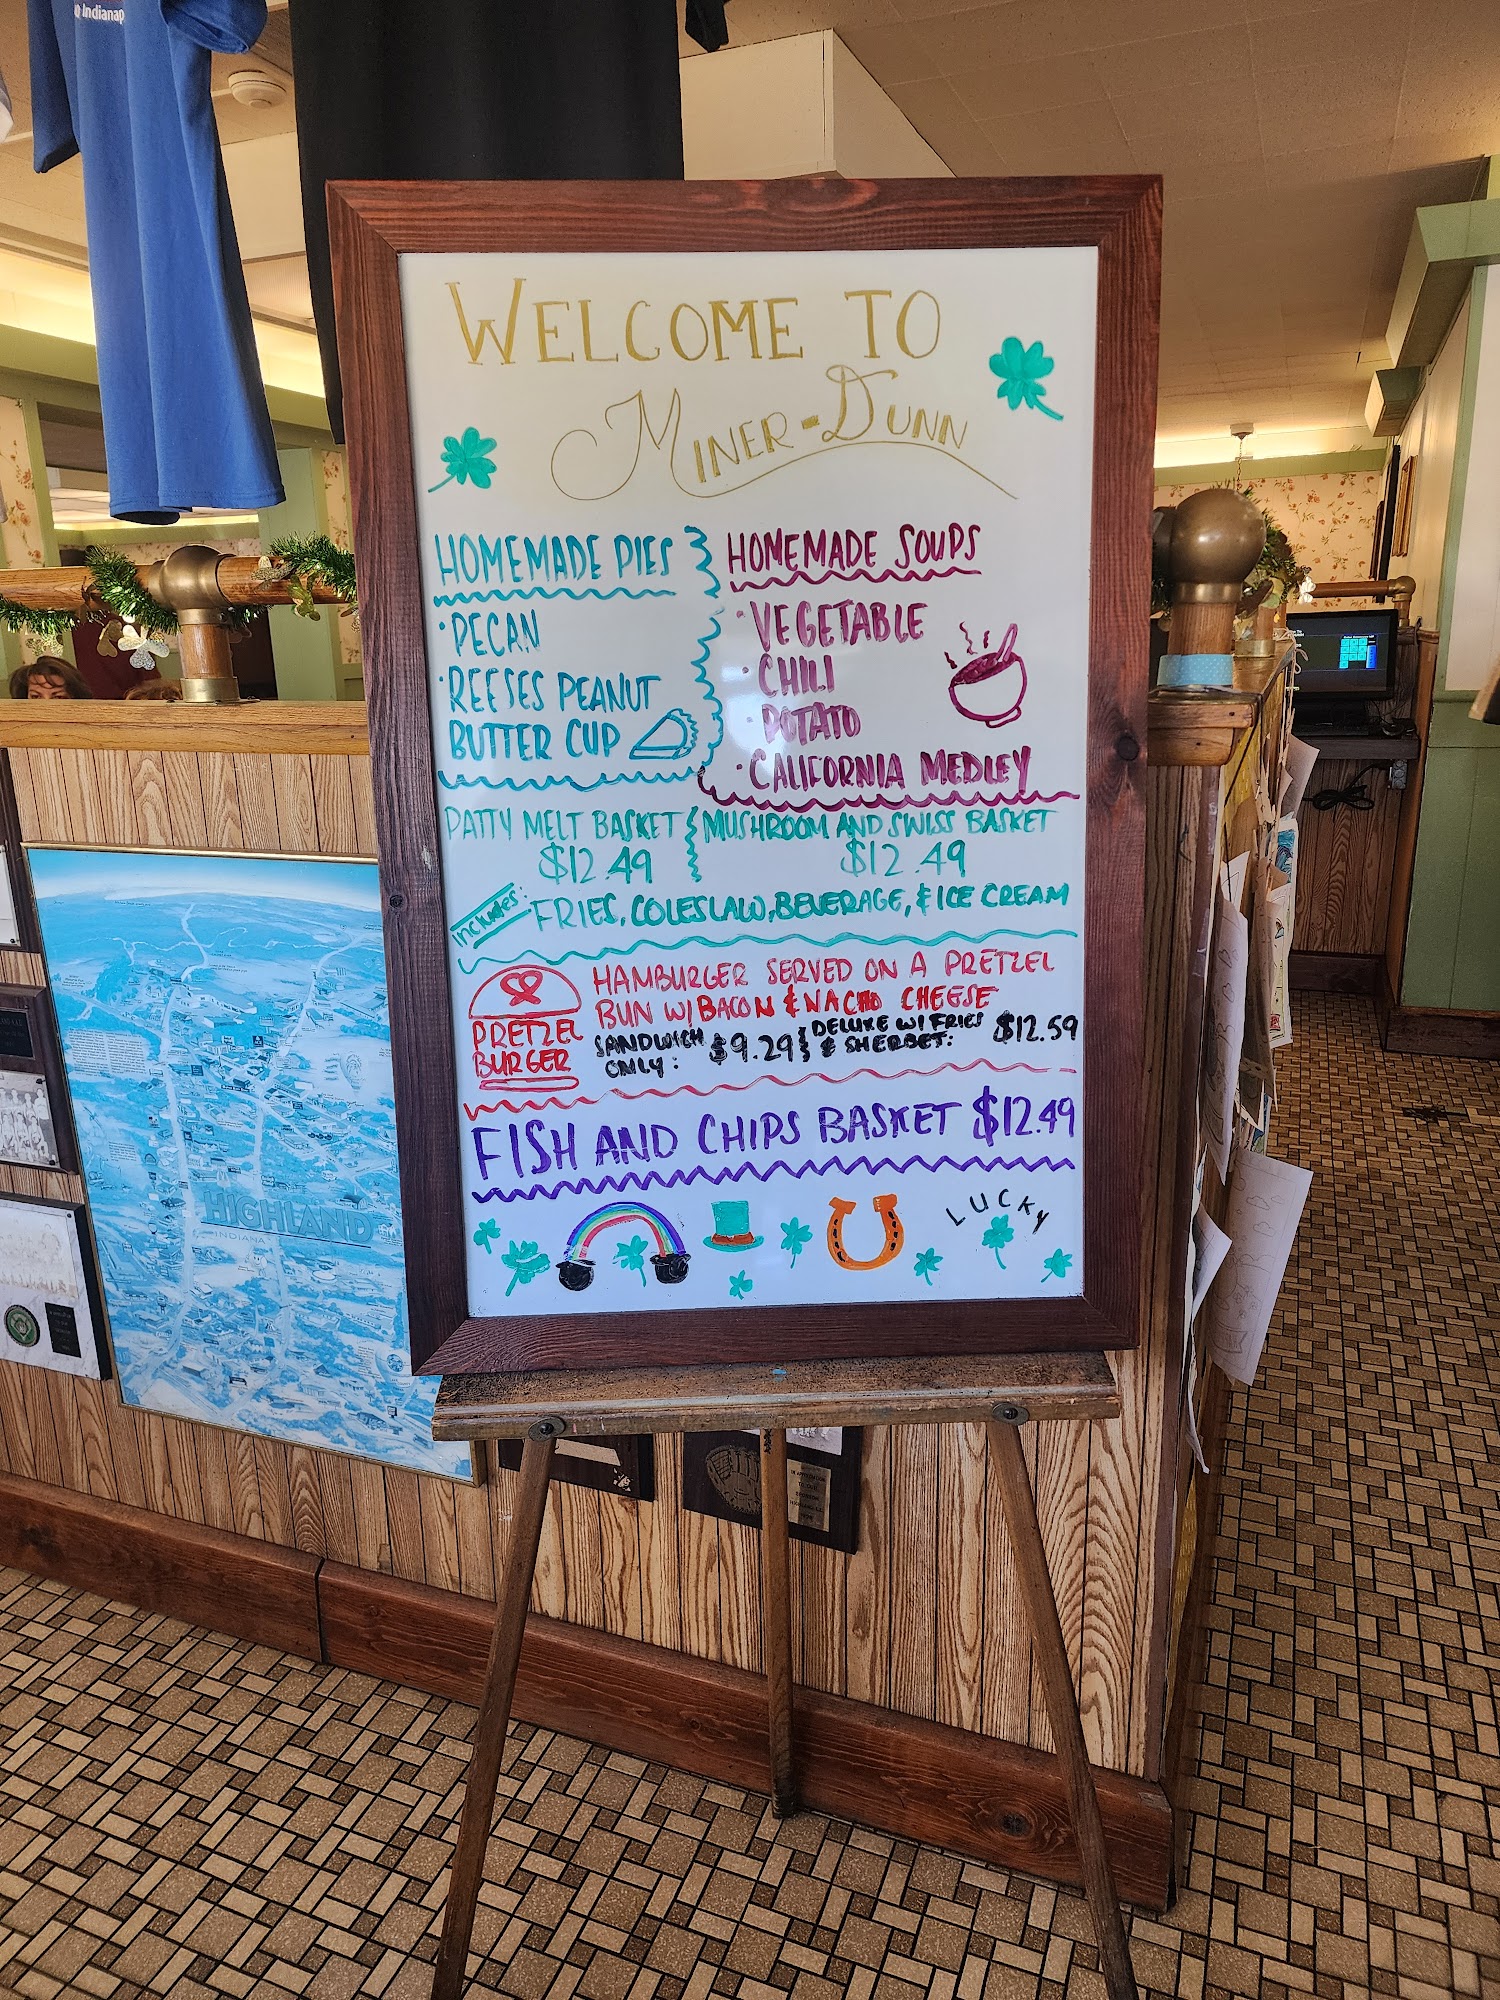 WELCOME TO
MINER-DUNN
HOMEMADE PIES
·PECAN
·REESES PEANUT
BUTTER CUP
HOMEMADE SOUPS
·VEGETABLE
·CHILI
·POTATO
·CALIFORNIA MEDLEY
PATTY MELT BASKET
$12.49
MUSHROOM AND SWISS BASKET
$12.49
includes: FRIES, COLESLAW, BEVERAGE, & ICE CREAM
PRETZEL
BURGER
HAMBURGER SERVED ON A PRETZEL
BUN W/ BACON & NACHO CHEESE
SANDWICH
ONLY: $9.29
DELUXE W/ FRIES
& SHERBET: $12.59
FISH AND CHIPS BASKET $12.49
LUCKY
HIGHLAND
INDIANA